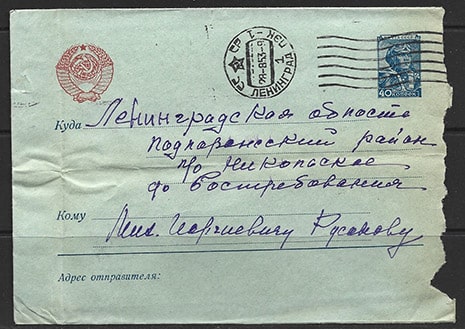 ПОЧТА СССР
40 КОПЕЕК
СССР
28-8-53-9
ЛЕНИНГРАД
1
Куда Ленинградская область
Подпорожский район
п/о Никольское
до востребования
Кому Мих. Георгиевичу Русакову
Адрес отправителя: